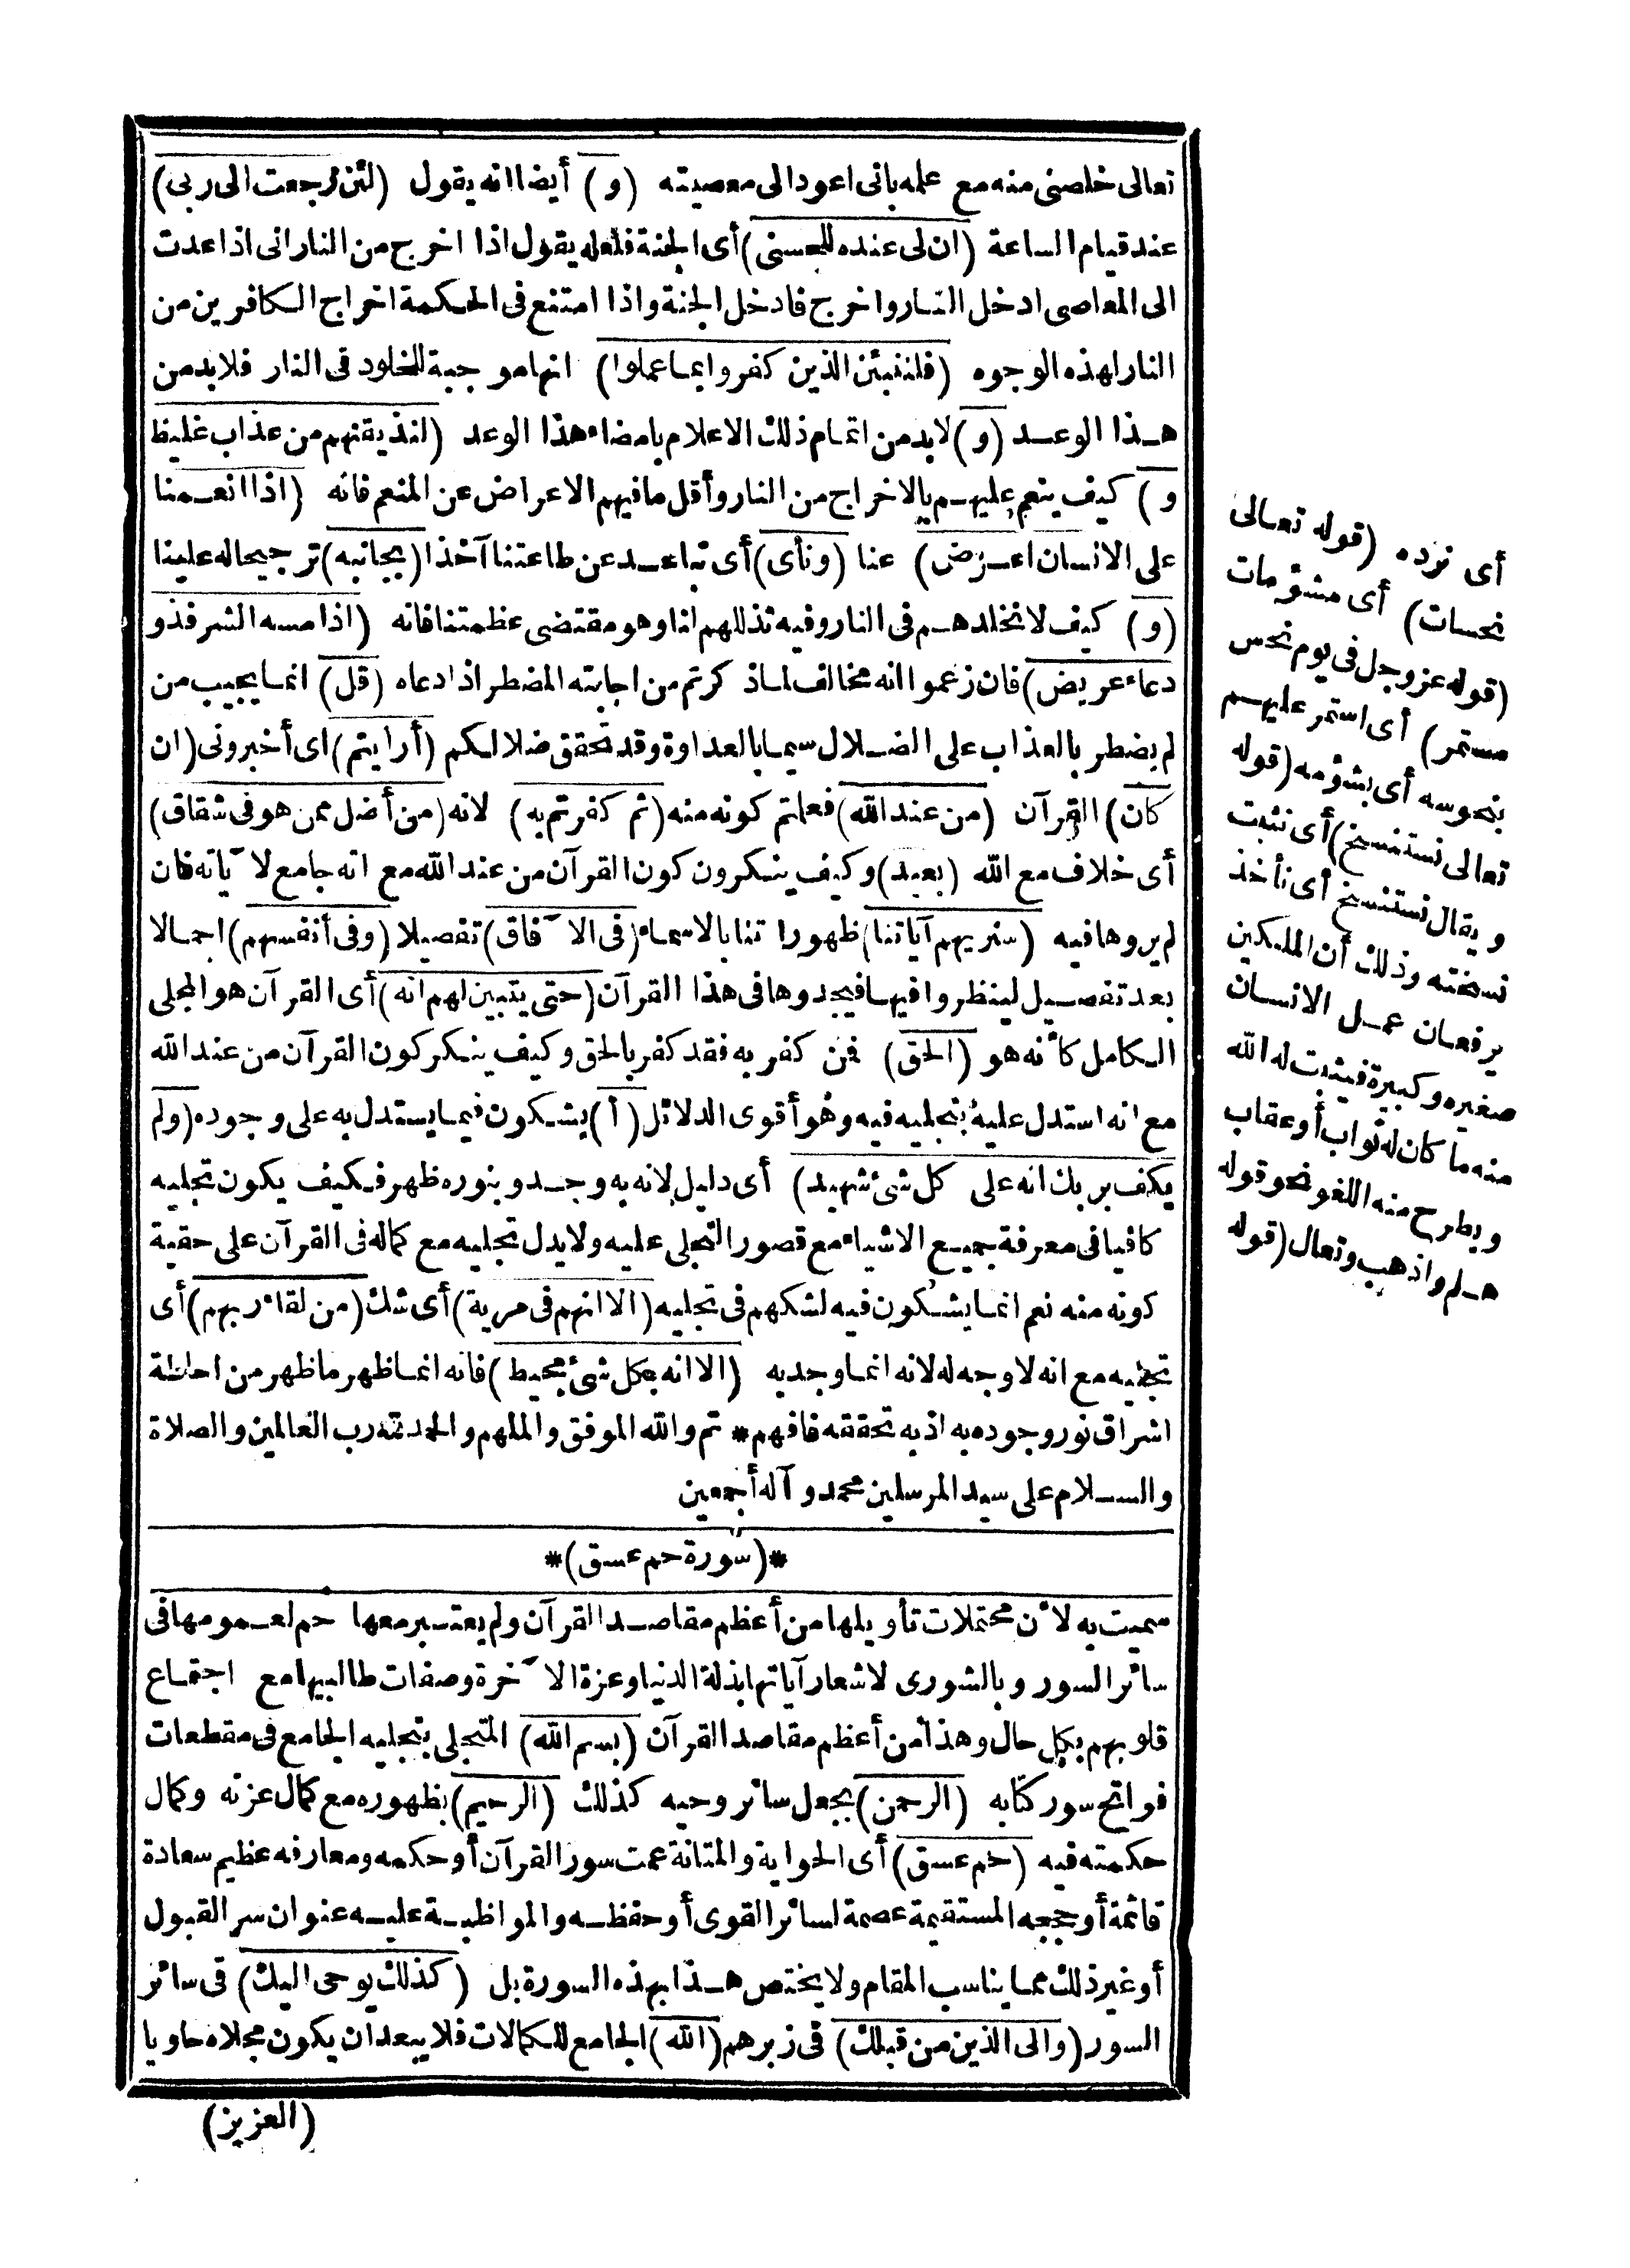 تعالى خلصنى منه مع علمه بانى اعود الى معصيته (و) أيضا انه يقول (لئن رجعت الى ربى)
عند قيام الساعة (ان لى عنده للحسنى) أى الجنة فلعله يقول اذا اخرج من النار انى اذا عدت
الى المعاصى ادخل النار واخرج فادخل الجنة واذا امتنع فى الحكمة اخراج الكافرين من
النار لهذه الوجوه (فلننبئن الذين كفروا بما عملوا) انها موجبة للخلود فى النار فلابد من
هذا الوعد (و) لابد من اتمام ذلك الاعلام بامضاء هذا الوعد (لنذيقنهم من عذاب غليظ
و) كيف ينعم عليهم بالاخراج من النار وأقل ما فيهم الاعراض عن المنعم فانه (اذا انعمنا
على الانسان اعرض) عنا (ونأى) أى تباعد عن طاعتنا آخذا (بجانبه) ترجيحا له علينا
(و) كيف لا نخلدهم فى النار وفيه تذللهم لنا وهو مقتضى عظمتنا فانه (اذا مسه الشر فذو
دعاء عريض) فان زعموا انه مخالف لما ذكرتم من اجابته المضطر اذا دعاه (قل) انما يجيب من
لم يضطر بالعذاب على الضلال سيما بالعداوة وقد تحقق ضلالكم (أرايتم) اى أخبرونى (ان
كان) القرآن (من عند الله) فعلتم كونه منه (ثم كفرتم به) لانه (من أضل ممن هو فى شقاق)
أى خلاف مع الله (بعيد) وكيف ينكرون كون القرآن من عند الله مع انه جامع لآياته فان
لم يروها فيه (سنريهم آياتنا) ظهورا تنا بالاسماء (فى الآفاق) تفصيلا (وفى أنفسهم) اجمالا
بعد تفصيل لينظروا فيها فيجدوها فى هذا القرآن (حتى يتبين لهم انه) أى القرآن هو المجلى
الكامل كأنه هو (الحق) فمن كفر به فقد كفر بالحق وكيف ينكر كون القرآن من عند الله
مع انه استدل عليه بتجليه فيه وهو أقوى الدلائل (أ) يشكون فيما يستدل به على وجوده (ولم
يكف بربك انه على كل شئ شهيد) أى دليل لانه به وجد وبنوره ظهر فكيف يكون تجليه
كافيا فى معرفة جميع الاشياء مع قصور التجلى عليه ولا يدل تجليه مع كماله فى القرآن على حقية
كونه منه نعم انما يشكون فيه لشكهم فى تجليه (الا انهم فى مرية) أى شك (من لقاء ربهم) أى
تجليه مع انه لا وجه له لانه انما وجد به (الا انه بكل شئ محيط) فانه انما ظهر ما ظهر من احاطة
اشراق نور وجوده به اذ به تحققه فافهم * تم والله الموفق والملهم والحمد لله رب العالمين والصلاة
والسلام على سيد المرسلين محمد وآله أجمعين
*(سورة حم عسق)*
سميت به لأن محتملات تأويلها من أعظم مقاصد القرآن ولم يعتبر معها حم لعمومها فى
سائر السور وبالشورى لاشعار آياتها بذلة الدنيا وعزة الآخرة وصفات طالبيها مع اجتماع
قلوبهم بكل حال وهذا من أعظم مقاصد القرآن (بسم الله) المتجلى بتجليه الجامع فى مقطعات
فواتح سور كتابه (الرحمن) بجعل سائر وحيه كذلك (الرحيم) بظهوره مع كمال عزته وكمال
حكمته فيه (حم عسق) أى الحواية والمتانة عمت سور القرآن أو حكمه ومعارفه عظيم سعادة
قائمة أو حججه المستقيمة عصمة لسائر القوى أو حفظه والمواظبة عليه عنوان سر القبول
أو غير ذلك مما يناسب المقام ولا يختص هذا بهذه السورة بل (كذلك يوحى اليك) فى سائر
السور (والى الذين من قبلك) فى زبرهم (الله) الجامع للكمالات فلا يبعد ان يكون مجلاه حاويا
(العزيز)
أى نرده (قوله تعالى
نحسات) أى مشؤمات
(قوله عز وجل فى يوم نحس
مستمر) أى استمر عليهم
بنحوسه أى بشؤمه (قوله
تعالى نستنسخ) أى نثبت
ويقال نستنسخ أى نأخذ
نسخته وذلك أن الملكين
يرفعان عمل الانسان
صغيره وكبيرة فيثبت له الله
منه ما كان له ثواب أو عقاب
ويطرح منه اللغو نحو قوله
هلم واذهب وتعال (قوله